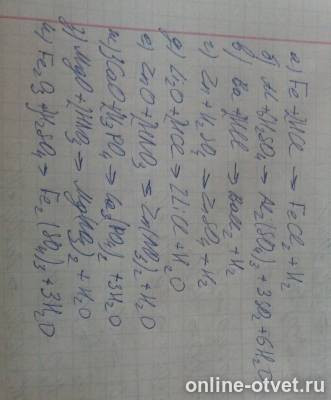 а) Fe + 2HCl → FeCl2 + H2
б) Al + H2SO4 → Al2(SO4)3 + 3SO2 + 6H2O
в) Ba + 2HCl → BaCl2 + H2
г) Zn + H2SO4 → ZnSO4 + H2
д) Li2O + 2HCl → 2LiCl + H2O
е) ZnO + 2HNO3 → Zn(NO3)2 + H2O
ж) 3CaO + 2H3PO4 → Ca3(PO4)2 + 3H2O
з) MgO + 2HNO3 → Mg(NO3)2 + H2O
и) Fe2O3 + 3H2SO4 → Fe2(SO4)3 + 3H2O
online-otvet.ru